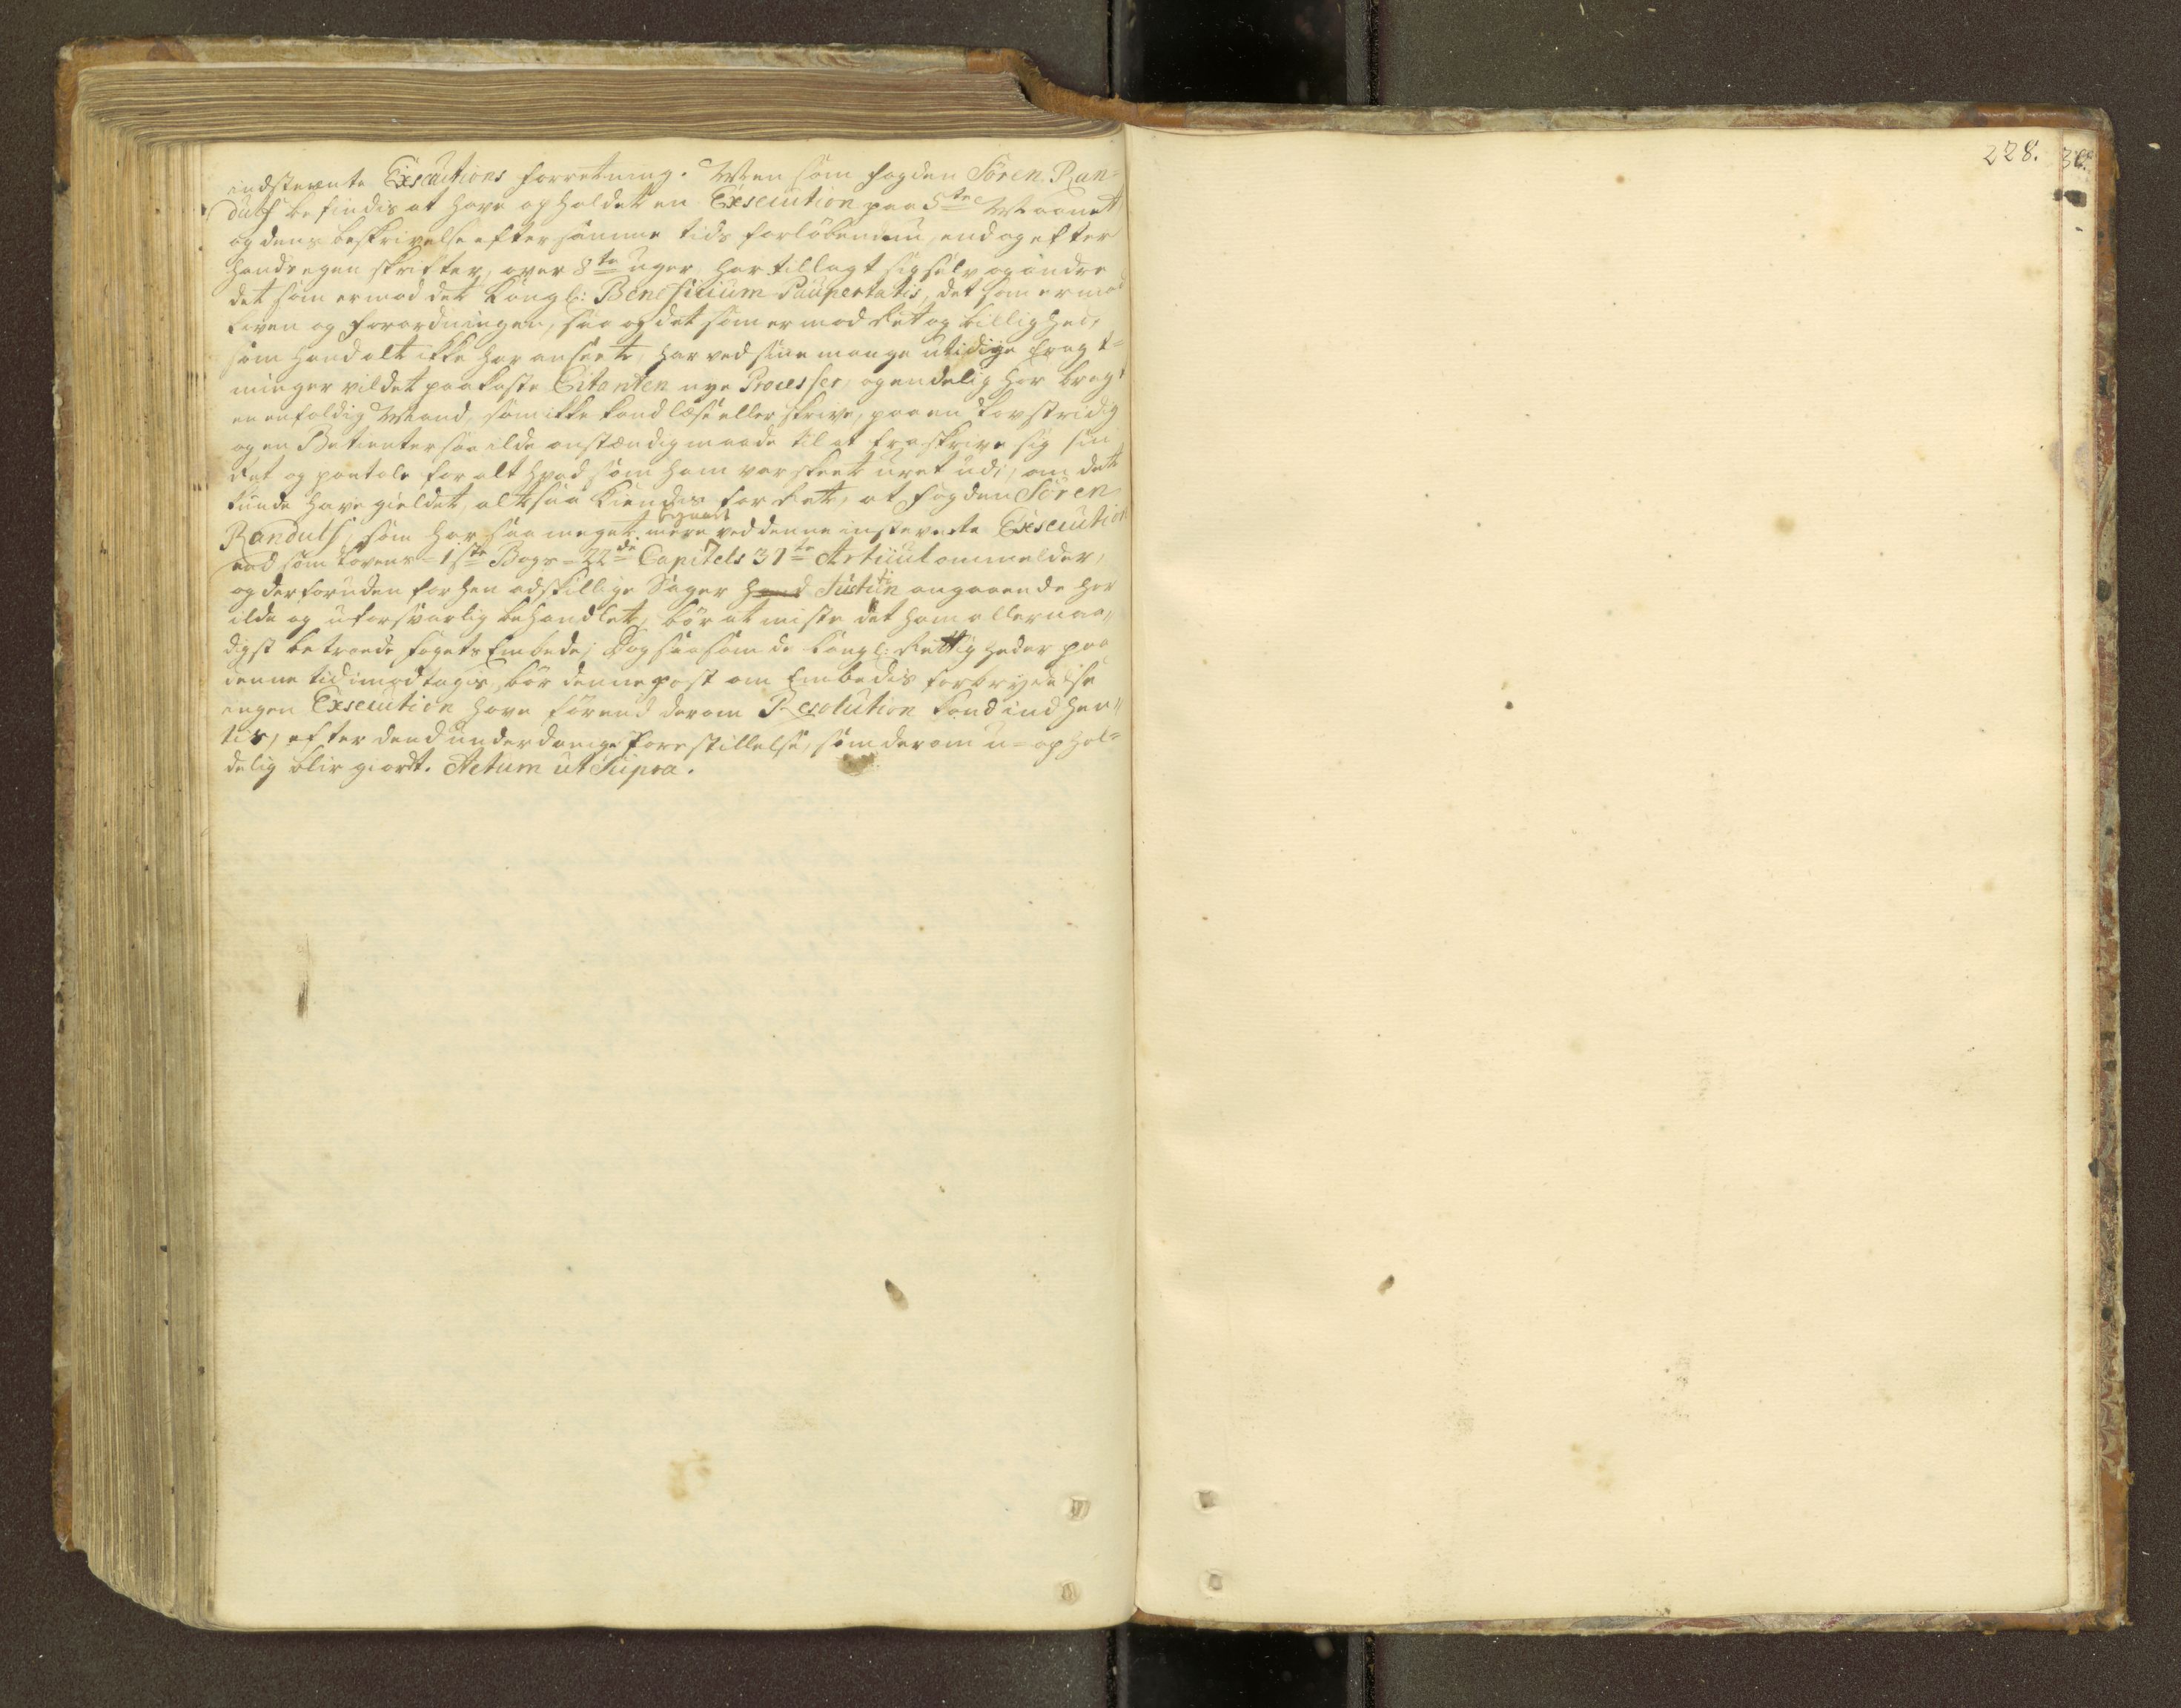 indstevnte Exsecutions forretning. Men som fogden Sören Ran-
dulf befindis at have opholdet en Exsecution paa 5te Maanet
og dens beskrivelse efter samme tids forløb endnu, endog efter
hands egen skrifter, over 8te uger, har tillagt sig selv og andre
det som er mod det Kongl: Beneficium Paupertatis, det som er mod
Loven og forordningen, saa og det som er mod Ret og billighed,
som hand alt ikke har anseet, har ved sine mange utidige
minger vildet paakaste Citanten nye Processer, og endelig har bragt
en enfoldig Mand, som ikke kand læse eller skrive, paa en Lovstridig
og en Betienter saa ilde anstændig maade til at fraskrive sig sin
Ret og paatale for alt hvad som ham var skeet uret udi, om det
kunde have gieldet, altsaa kiendes for Ret, at fogden Sören
Randulf, som har saa meget mere ved denne instevnte Exsecution
end som Lovens 1ste Bogs 22de Capitels 31te Articul ommelder,
og der foruden forhen adskillige Sager hand Justitien angaaende har
ilde og uforsvarlig behandlet, bör at miste det ham allernaa-
digst betroede fogets Embede; Dog saasom de Kongl: Rettigheder paa
denne tid imodtages, bör denne post om Embedis forbrydelse
ingen Exsecution have förend derom Resolution kand indhen-
tis, efter dend underdanige forestillelse, som derom u-ophol-
delig blir giordt. Actum ut Supra.
228.